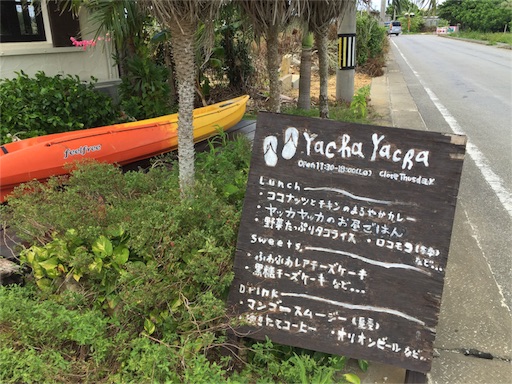 feelfree
Yacha Yacha
Open 11:30-18:00(L.O) Close Thursday
Lunch
・ココナッツとチキンのまろやかカレー
・ヤッカヤッカのお昼ごはん
・野菜たっぷりタコライス ・ロコモコ
など…
Sweets
・ふわふわレアチーズケーキ
・黒糖チーズケーキ など…
Drink
・マンゴースムージー(夏季)
・挽きたてコーヒー ・オリオンビール など…